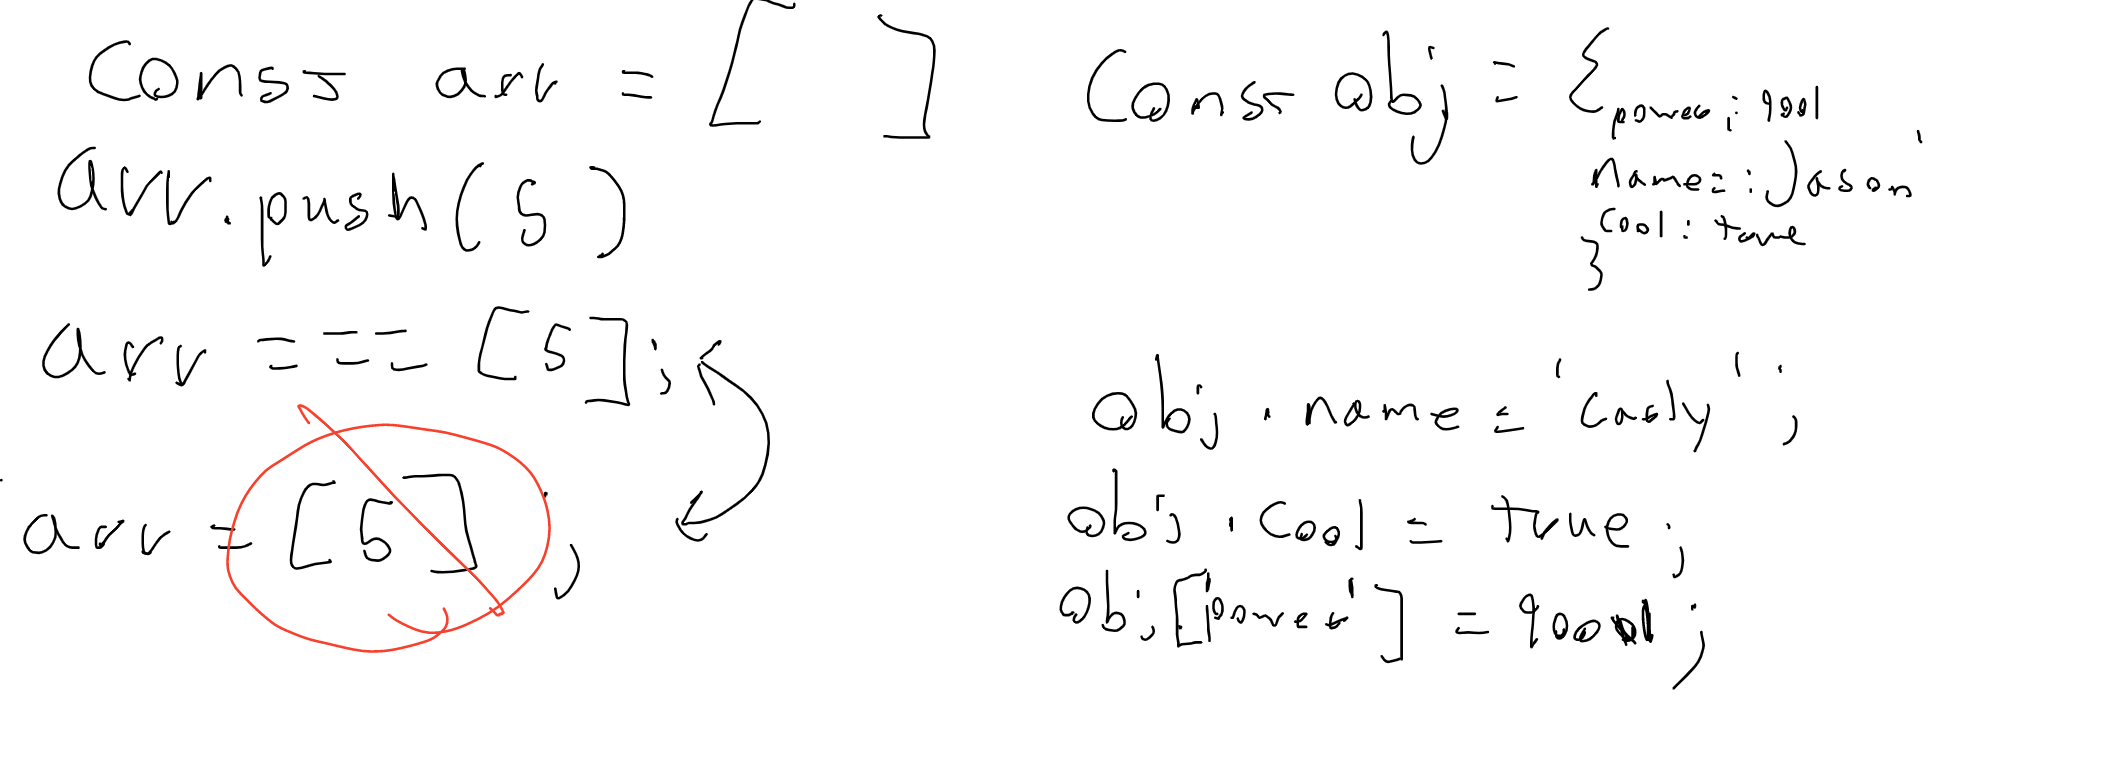 const arr = [ ]
arr.push(5)
arr === [5];
arr = [5];
const obj = {
power: 9001
name: Jason'
cool: true
}
obj.name = 'Carly';
obj.cool = true;
obj['power'] = 9001;